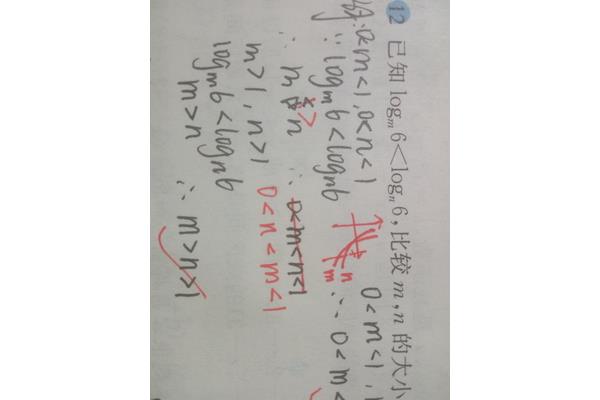 12 已知 logₘ6<logₙ6,比较 m,n 的大小
解:0<m<1,0<n<1
∵ logₘ6<logₙ6
∴ m > n ∴ 0<m<n<1
0<n<m<1
m>1,n>1
logₘ6<logₙ6
m>n ∴ m>n>1
n
m
0<m<1,
∴ 0<m<